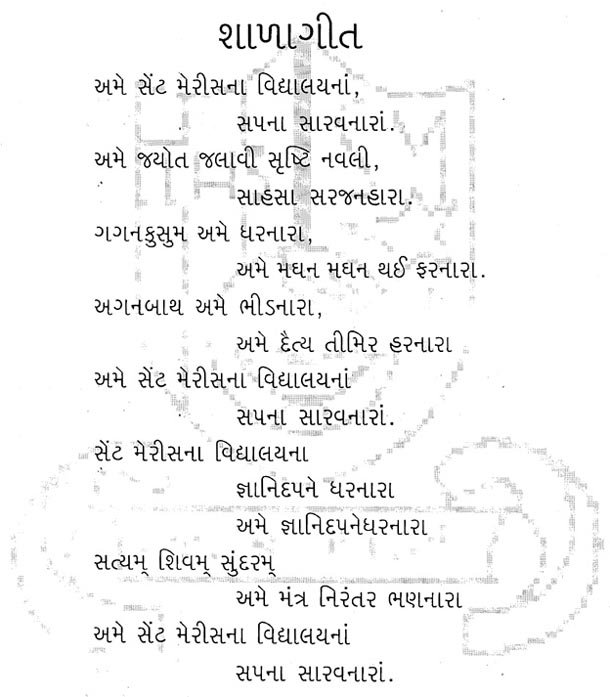 શાળાગીત
અમે સેંટ મેરીસના વિદ્યાલયનાં,
સપના સારવનારાં.
અમે જયોત જલાવી સૃષ્ટિ નવલી,
સાહસા સરજનહારા.
ગગનકુસુમ અમે ધરનારા,
અમે મઘન મઘન થઈ ફરનારા.
અગનબાથ અમે ભીડનારા,
અમે દૈત્ય તીમિર હરનારા
અમે સેંટ મેરીસના વિદ્યાલયનાં
સપના સારવનારાં.
સેંટ મેરીસના વિદ્યાલયના
જ્ઞાનિદપને ધરનારા
અમે જ્ઞાનિદપનેધરનારા
સત્યમ્ શિવમ્ સુંદરમ્
અમે મંત્ર નિરંતર ભણનારા
અમે સેંટ મેરીસના વિદ્યાલયનાં
સપના સારવનારાં.